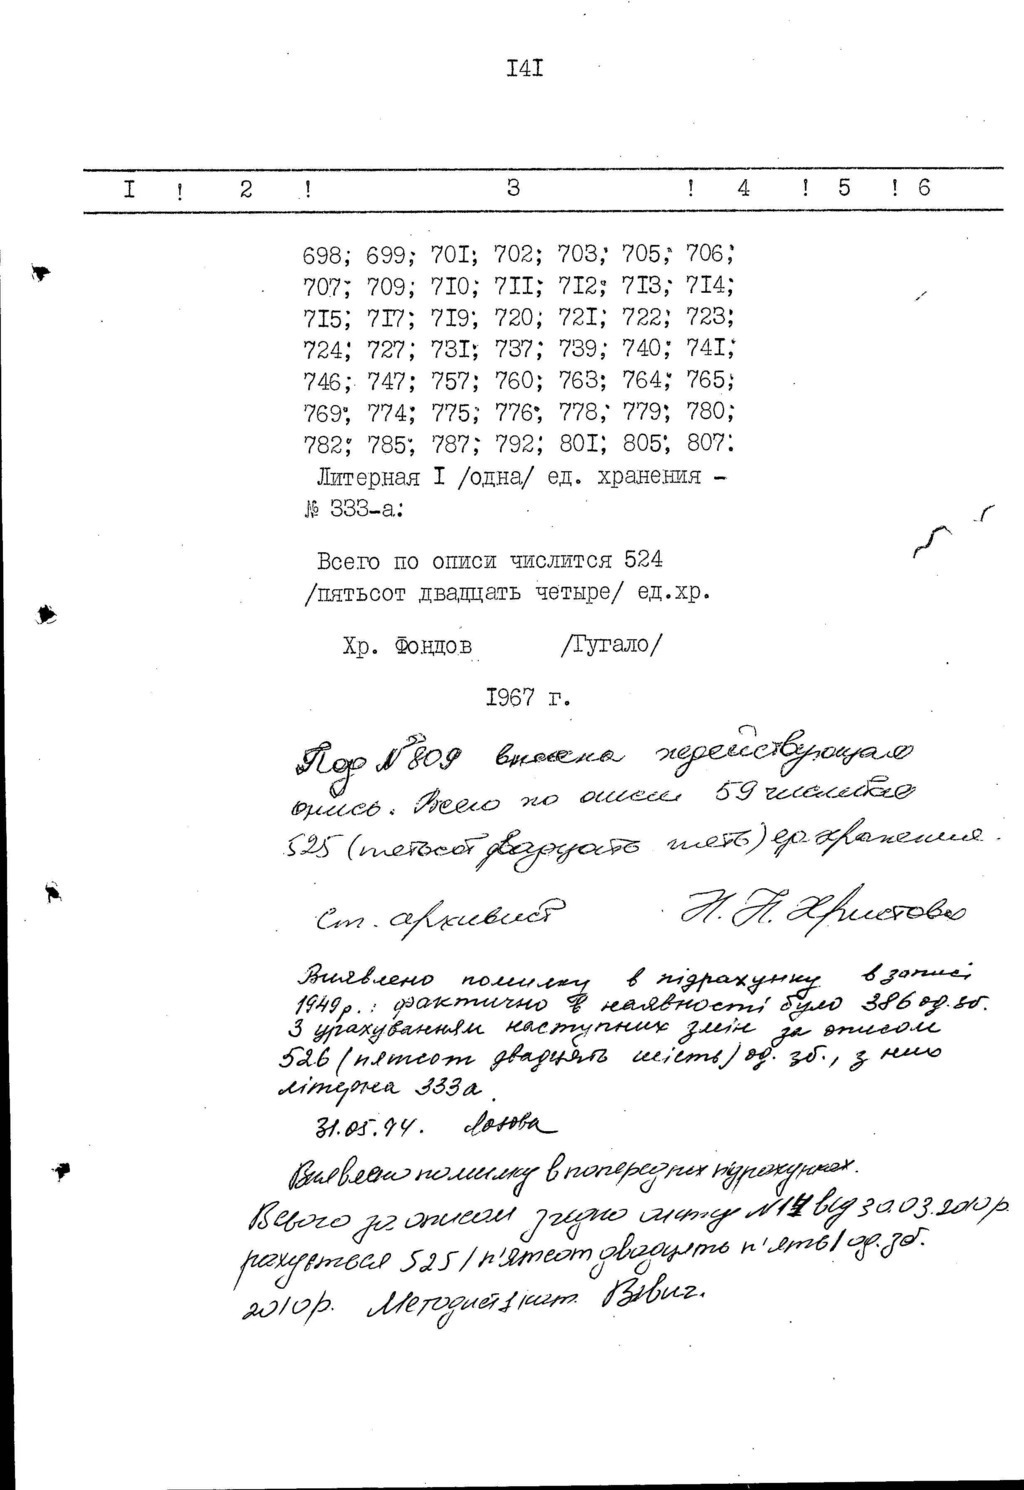 I4I
I ! 2 ! 3 ! 4 ! 5 ! 6
698; 699; 70I; 702; 703; 705; 706;
707; 709; 7I0; 7II; 7I2; 7I3; 7I4;
7I5; 7I7; 7I9; 720; 72I; 722; 723;
724; 727; 73I; 737; 739; 740; 74I;
746; 747; 757; 760; 763; 764; 765;
769; 774; 775; 776; 778; 779; 780;
782; 785; 787; 792; 80I; 805; 807:
Литерная I /одна/ ед. хранения -
№ 333-а:
Всего по описи числится 524
/пятьсот двадцать четыре/ ед.хр.
Хр. Фондов /Тугало/
I967 г.
Под № 809 внесена недействующая
опись. Всего по описи 59 числится
525 (пятьсот двадцать пять) ед. хранения.
Ст. архивист Н. П. Христова
Виявлено помилку в підрахунку в записі
1949р.: фактично в наявності було 386 од. зб.
З урахуванням наступних змін за описом
526 (пятсот двадцять шість) од. зб., з них
літерна 333а.
31.05.94. Лозова
Виявлено помилку в попередніх підрахунках.
Всього за описом згідно акту № від 30.03.2010р.
рахується 525 /п'ятсот двадцять п'ять/ од. зб.
2010р. Методист І кат.